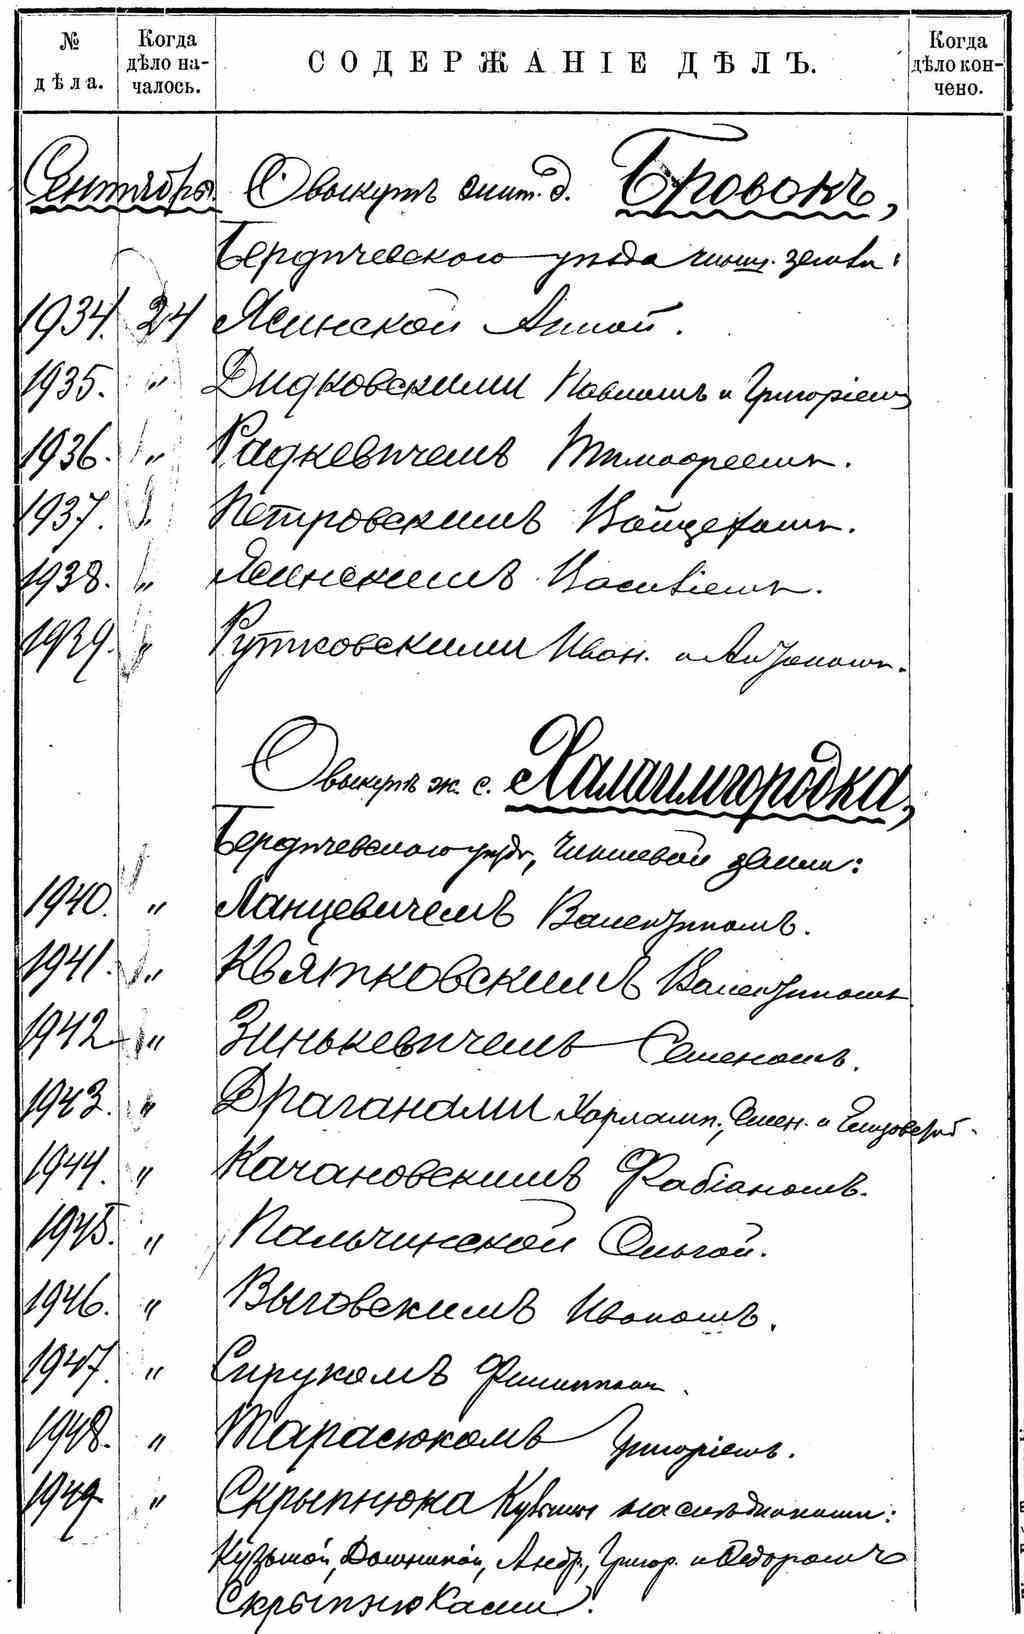 № дѣла.
Когда дѣло началось.
СОДЕРЖАНІЕ ДѢЛЪ.
Когда дѣло кончено.
Сентябрь. О выкупѣ жит. д. Бровокъ,
Бердичевского уѣзда чинш. земли:
1934. 24 Ясинской Анной.
1935. " Дидковскими Павломъ и Григоріемъ
1936. " Радкевичемъ Тимофеемъ.
1937. " Петровскимъ Войцехомъ.
1938. " Ясинскимъ Василіемъ.
1939. " Рутковскими Иван. и Антономъ.
О выкупѣ ж. с. Халаимгородка,
Бердичевского уѣзда, чиншевой земли:
1940. " Ланцевичемъ Валентиномъ.
1941. " Квятковскимъ Валентиномъ
1942 " Зинькевичемъ Семеномъ.
1943. " Драганами Харламп., Семен. и Елизавет.
1944. " Качановскимъ Фабіаномъ.
1945. " Пальчинской Ольгой.
1946. " Выговскимъ Иваномъ.
1947. " Спрукомъ Филиппом.
1948. " Тарасюкомъ Григоріемъ.
1949 " Скрыпнюка наслѣдниками:
Кузьмой, Андр., Григор. и Федоромъ
Скрыпнюками.